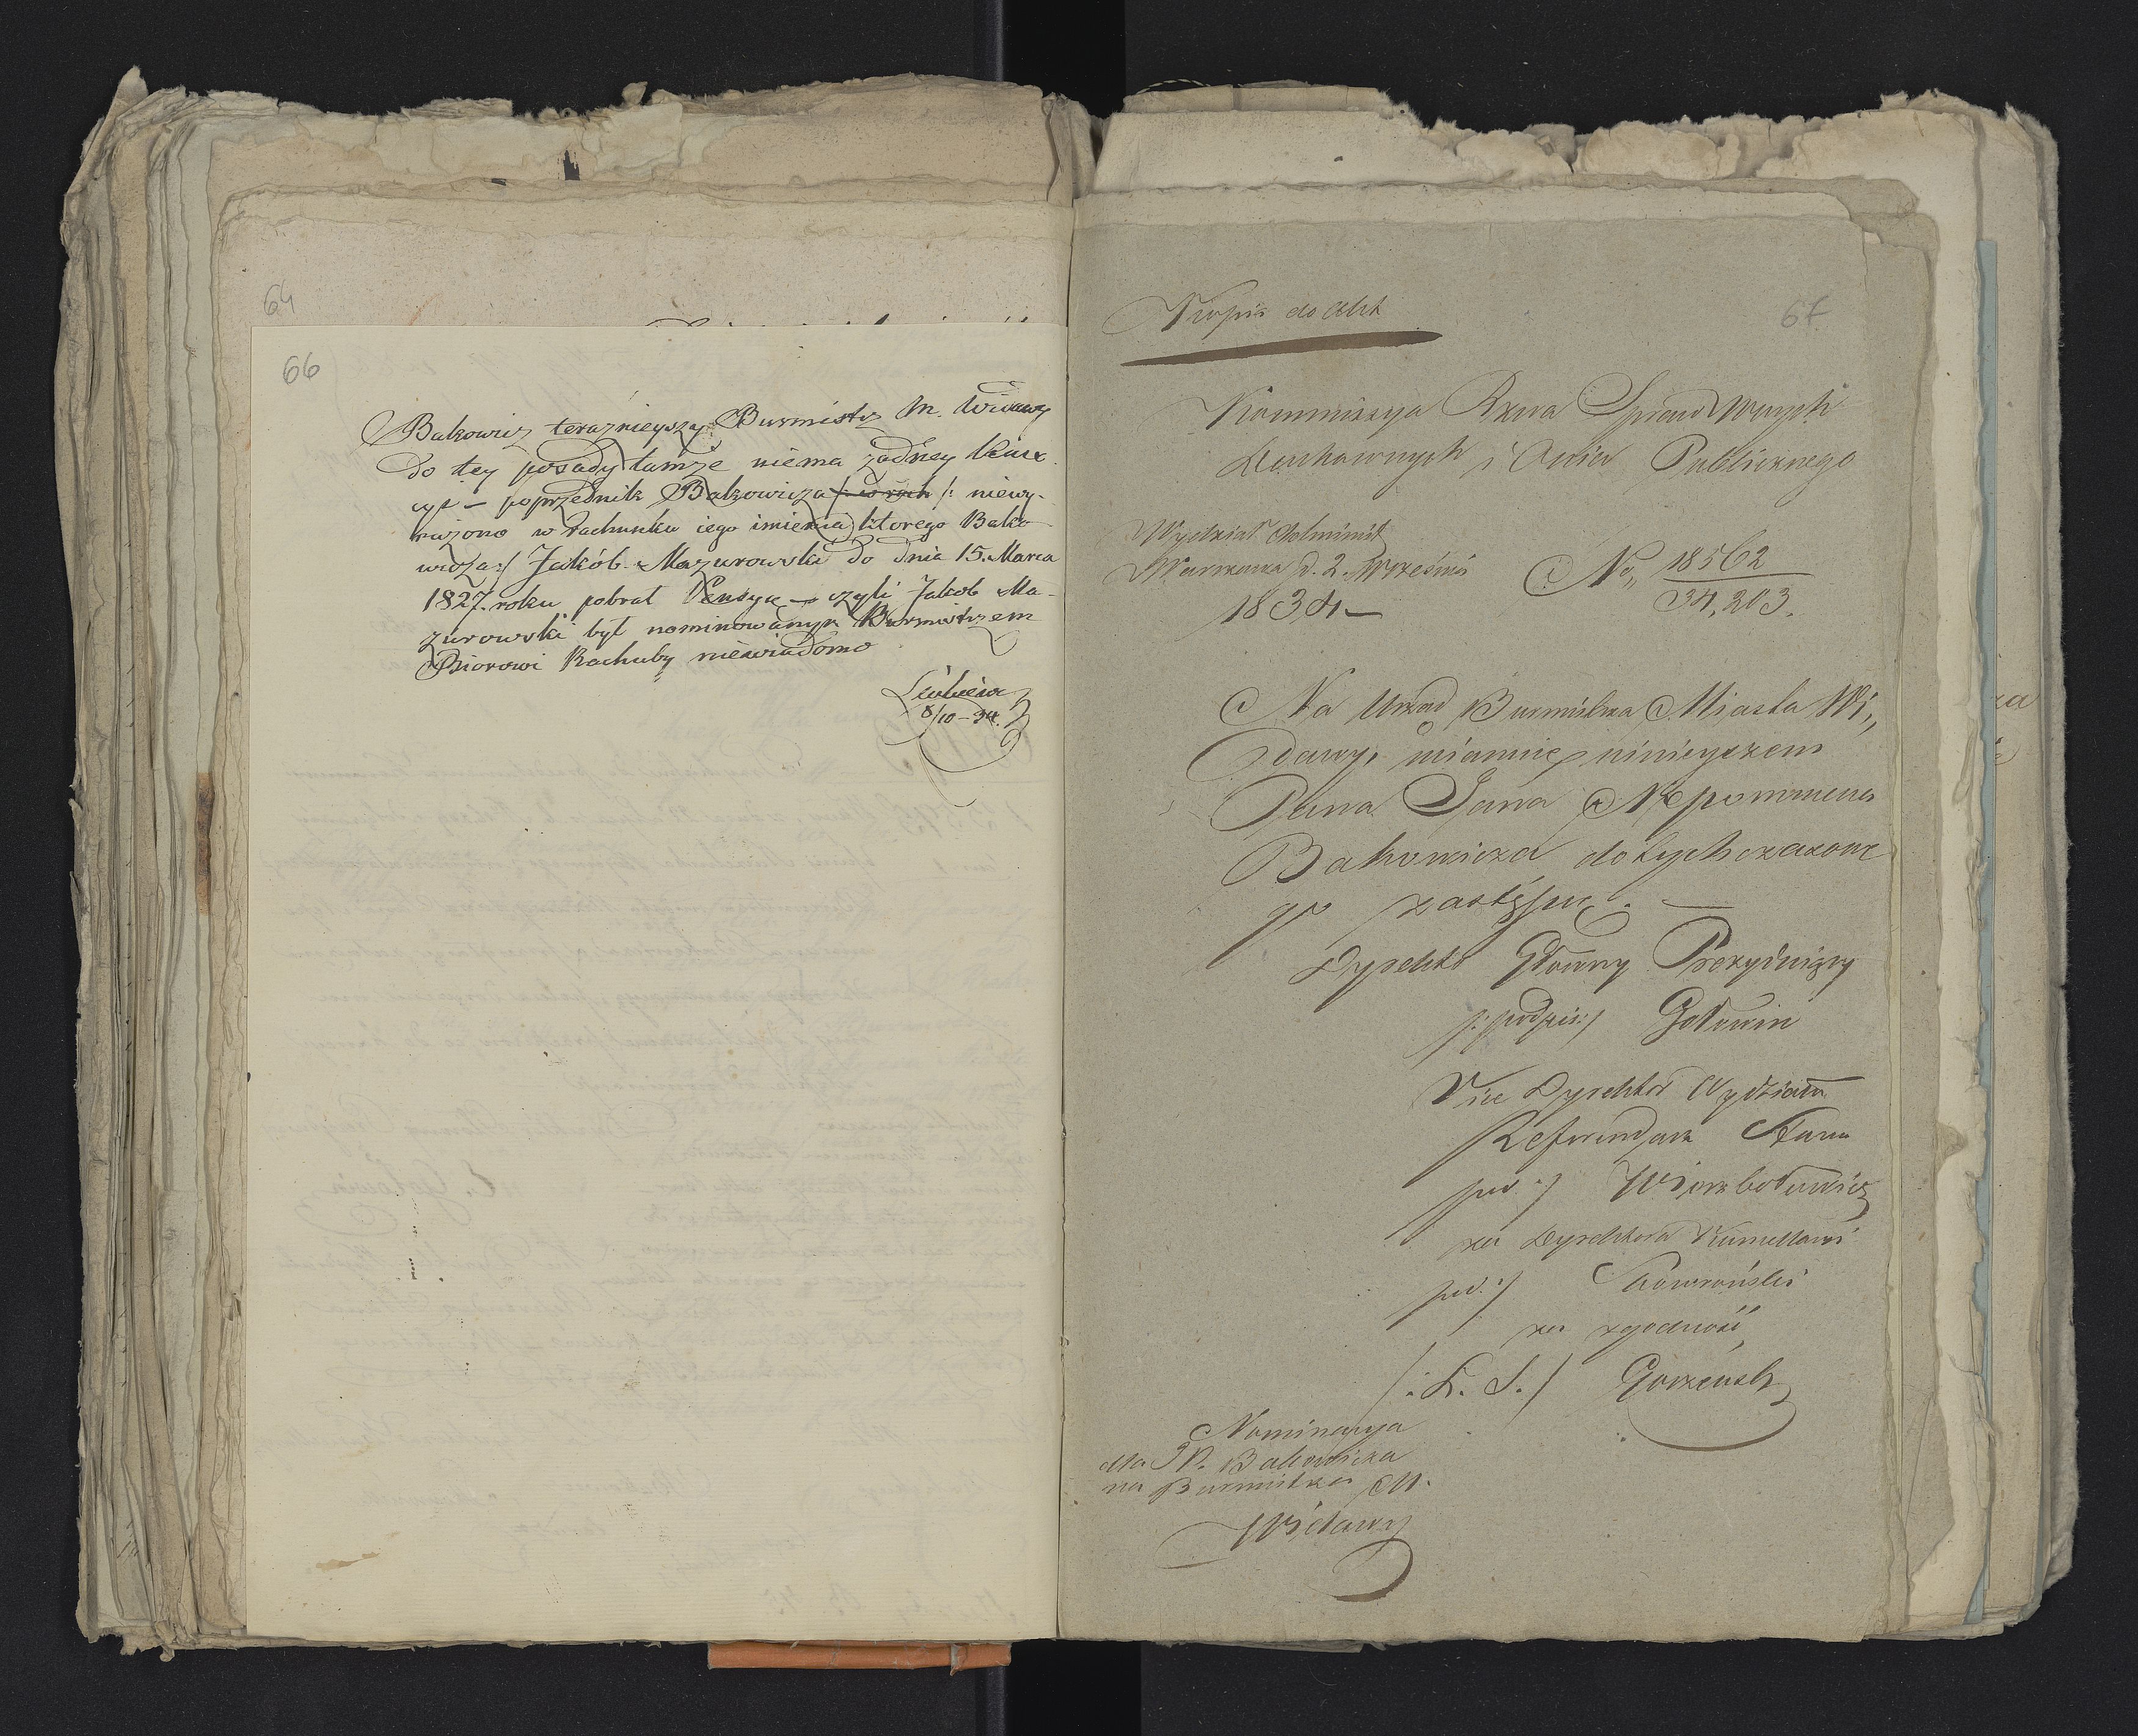 64
66
Bakowicz teraznieyszy Burmistrz M. Widawy
do tey posady tamże niema żadney Kau
cyi — poprzednik Bakowicza /: niewy-
rażono w rachunku iego imienia) ktorego Bako
wicza:/ Jakób Mazurowski do dnia 15. Marca
1827. roku pobrał Pensyę — czyli Jakob Ma-
zurowski był nominowanym Burmistrzem
Biorowi Rachuby niewiadomo
8/10 – 34.
67
Kopia do Akt
Kommissya Rzwa Spraw Wewnych
Duchownych i Oświe Publicznego
Wydział Administ
Warszawa d. 2. Września
1834 —
No, 18562
34,203.
Na Urząd Burmistrza Miasta Wi„
dawy, mianuie ninieyszem
Pana Jana Nepomucena
Bakowicza dotychczasowe
go zastępcę. —
Dyrektor Główny Prezyduiący
/: podpis:/ Gołowin
Vice Dyrektor Wydziału
Referendarz Stanu
pod :/ Wierzbołowicz
za Dyrektora Kancellaryi
pod :/ Skowroński
za zgodność
/: L. S. / Gorzeński
Nominacya
dla JP. Bakowicza
na Burmistrza M.
Widawy